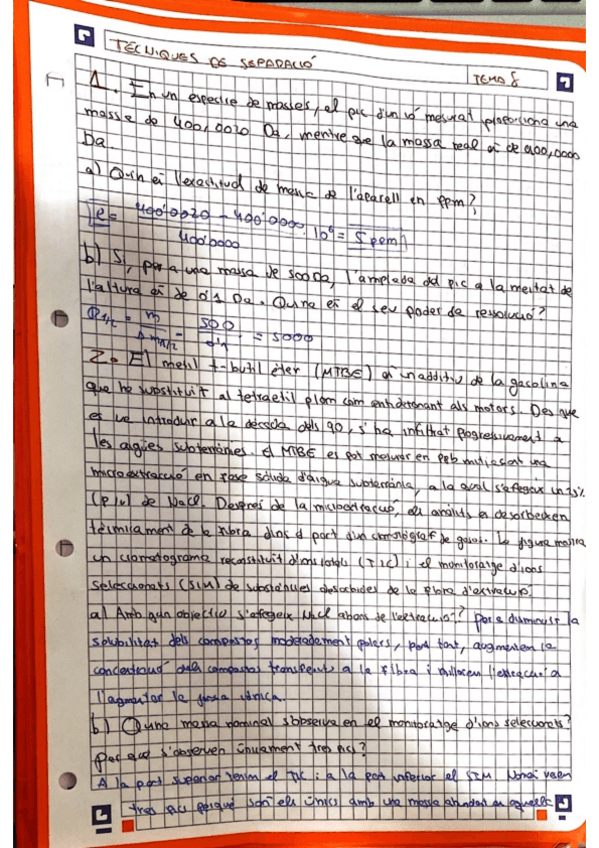 TÈCNIQUES DE SEPARACIÓ
TEMA 8
1. En un espectre de masses, el pic d'un ió mesurat proporciona una
massa de 400,0020 Da, mentre que la massa real és de 400,0000
Da.
a) Quin és l'exactitud de massa de l'aparell en ppm?
e = 400'0020 - 400'0000 / 400'0000 · 10⁶ = 5 ppm
b) Si, per a una massa de 500 Da, l'amplada del pic a la meitat de
l'altura és de 0'1 Da. Quina és el seu poder de resolució?
R1/2 = m / Δm1/2 = 500 / 0'1 = 5000
2. El metil t-butil èter (MTBE) és un additiu de la gasolina
que ha substituït al tetraetil plom com antidetonant als motors. Des que
es va introduir a la dècada dels 90, s'ha infiltrat progressivament a
les aigües subterrànies. El MTBE es pot mesurar en ppb mitjançant una
microextracció en fase sòlida d'aigua subterrània, a la qual s'afegeix un %
(p/v) de NaCl. Després de la microextracció, els anàlits es desorbeixen
tèrmicament de la fibra dins d port d'un cromatògraf de gasos. La figura mostra
un cromatograma reconstituït d'ions totals (TIC) i el monitoratge d'ions
seleccionats (SIM) de substàncies desorbides de la fibra d'extracció.
a) Amb quin objectiu s'afegeix NaCl abans de l'extracció? per a disminuir la
solubilitat dels compostos moderadament polars, per tant, augmenten la
concentració dels compostos transferits a la fibra i milloren l'extracció a
l'augmentar la força iònica.
b) Quina massa nominal s'observa en el monitoratge d'ions seleccionats?
Per què s'observen únicament tres pics?
A la part superior tenim el TIC i a la part inferior el SIM. Només veiem
tres pics perquè són els únics amb una massa abundant en aquells